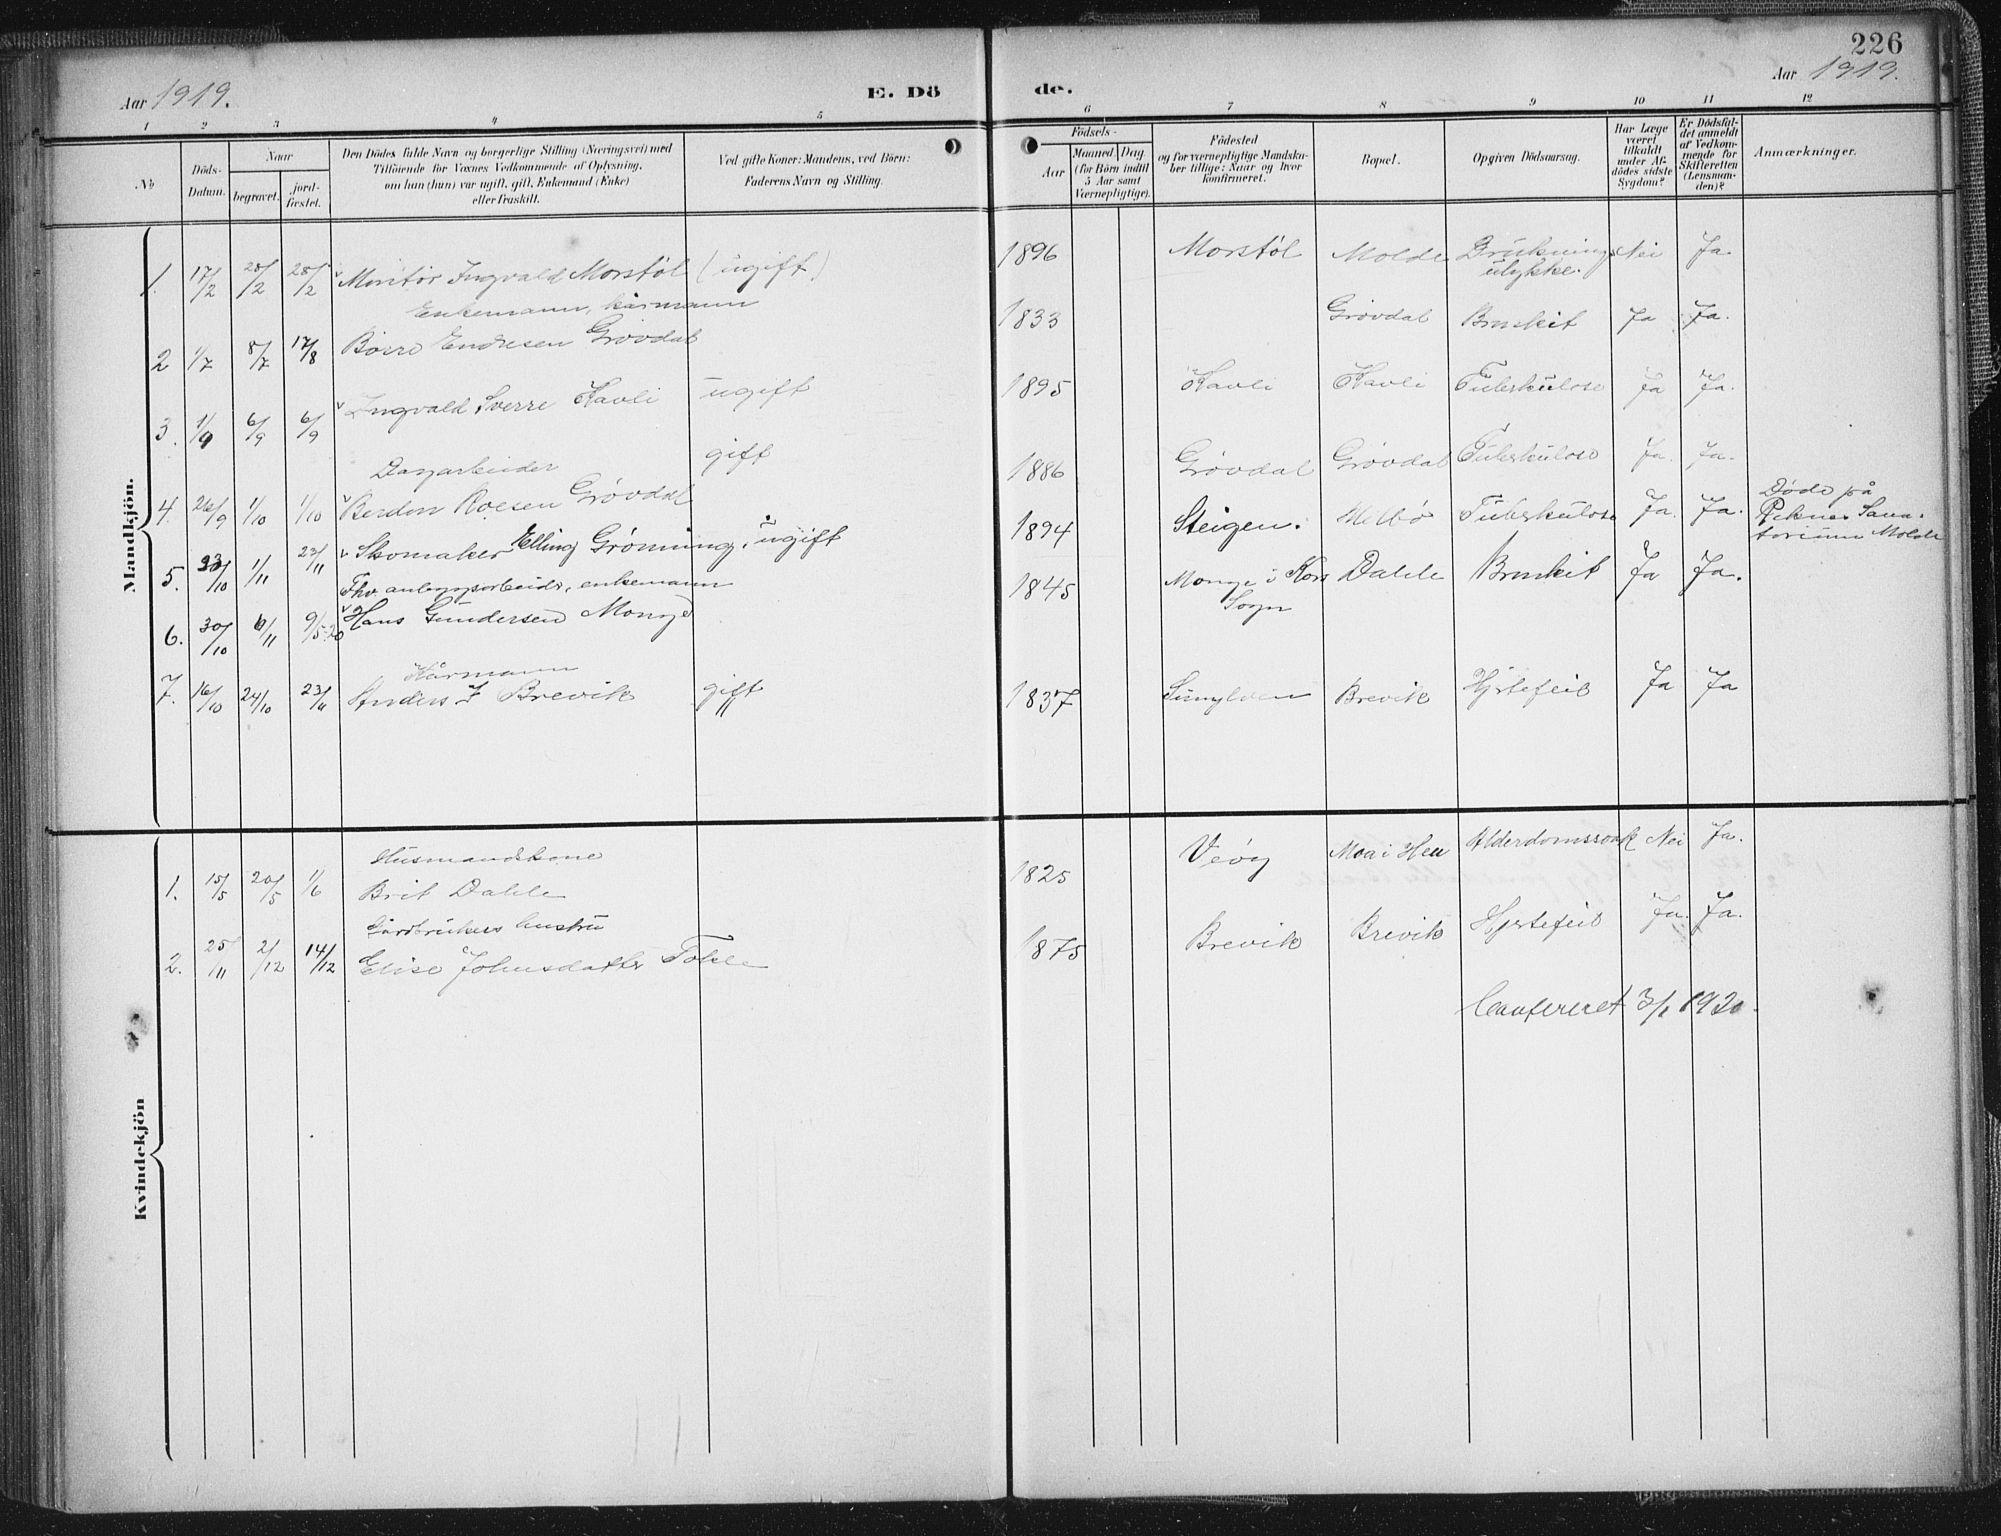 226
Aar 1919. E. Dö de. Aar 1919.
1 2 3 4 5 6 7 8 9 10 11 12
No
Döds-Datum.
Naar
begravet.
jord-fæstet.
Den Dödes fulde Navn og borgerlige Stilling (Næringsvei) med
Tilföiende for Voxnes Vedkommende af Oplysning,
om han (hun) var ugift, gift, Enkemand (Enke)
eller fraskilt.
Ved gifte Koner: Mandens, ved Börn:
Faderens Navn og Stilling.
Födsels-
Aar
Maaned Dag
(for Börn indtil
5 Aar samt
Værnepligtige).
Födested
og for værnepligtige Mandska-
ber tillige: Naar og hvor
konfirmeret.
Bopæl.
Opgiven Dödsaarsag.
Har Læge
været
tilkaldt
under Af-
dödes sidste
Sygdom?
Er Dödsfal-
det anmeldt
af Vedkom-
mende for
Skifteretten
(Lensman-
den)?
Anmærkninger.
Mandkjön.
1. 17/2 28/2 28/2 Ingvald Morstøl (ugift) 1896 Morstøl Molde Drukningsulykke. Nei Ja
Enkemann, kårmann
2 1/7 8/7 17/8 Børre Endresen Grøvdal 1833 Grøvdal Bronkit Ja Ja.
3. 1/9 6/9 6/9 Ingvald Sverre Kavli ugift 1895 Kavli Kavli Tuberkulose Ja Ja.
Dagarbeider
4. 26/9 1/10 1/10 Berdon Roesen Grøvdal gift 1886 Grøvdal Grøvdal Tuberkulose Ja. Ja.
5. 23/10 1/11 23/11 Skomaker Elling Grønning, ugift 1894 Steigen. Helbø Tuberkulose Ja. Ja. Døde på
Reknes Sana-
torium Molde
Fhv. anleggsarbeider, enkemann
6. 30/10 6/11 9/5-20 Hans Gundersen Monge 1845 Monge i Kors
Sogn Dahle Bronkit Ja Ja.
Kårmann
7. 16/10 24/10 23/11 Anders J Brevik gift 1837 Sunylven Brevik Hjertefeil Ja Ja
Kvindekjön
Husmandskone
1. 15/5 20/5 1/6 Brit Dahle 1825 Veöy Moa i Hen Alderdomssvak Nei Ja.
Gårdbrukers hustru
2. 25/11 2/12 14/12 Elise Johnsdatter Tokle 1875 Brevik Brevik Hjertefeil Ja. Ja.
Confereret 3/1 1920.